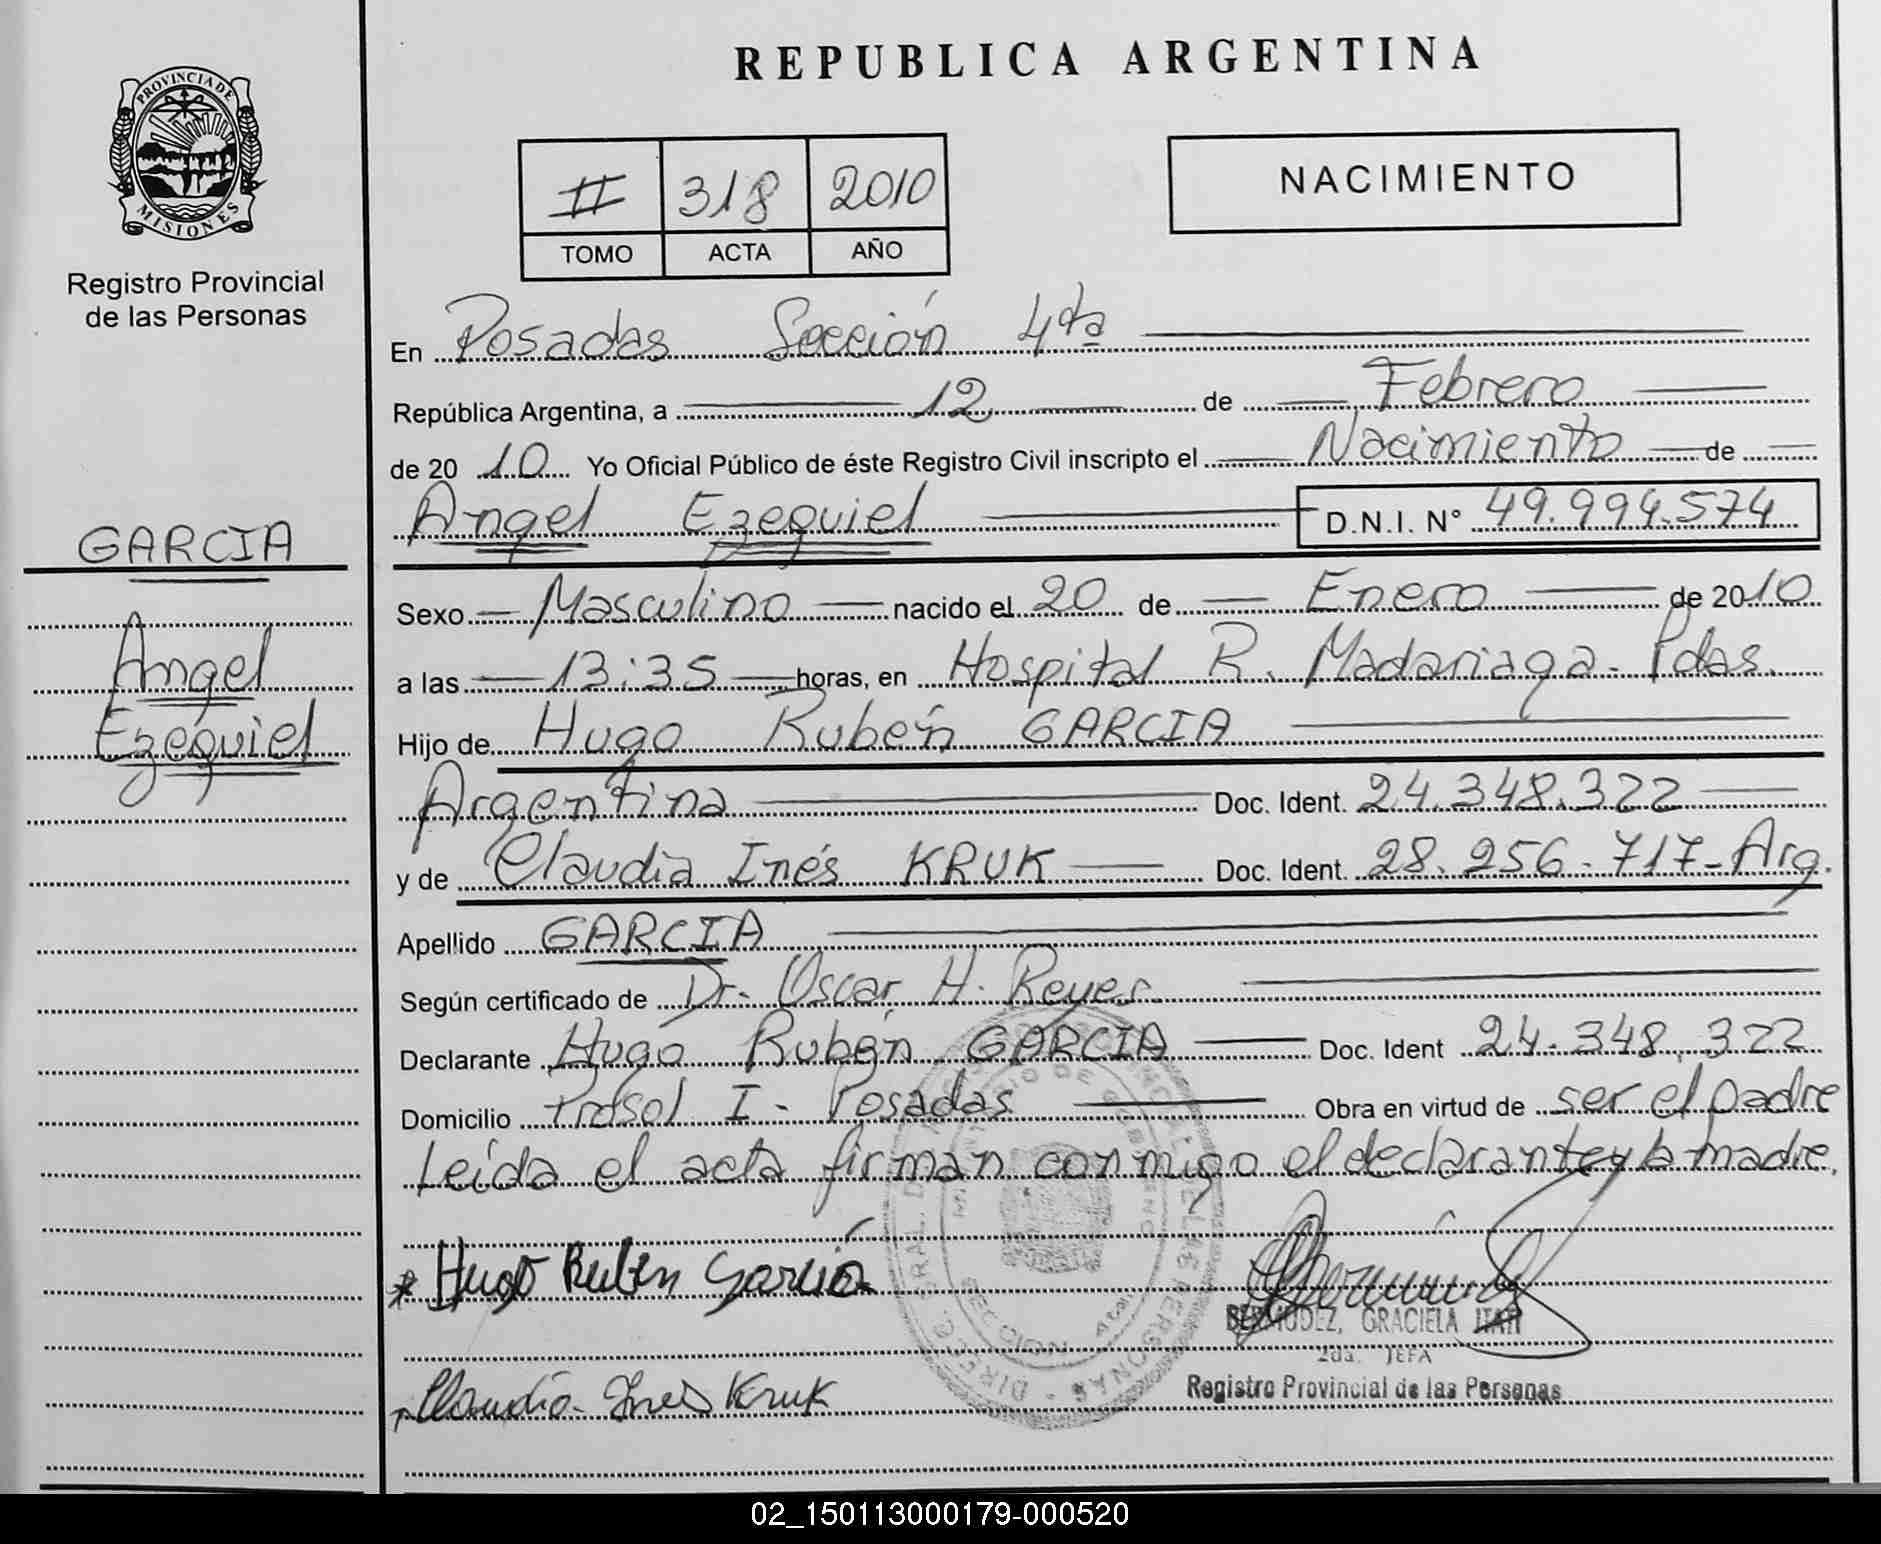 PROVINCIA DE
MISIONES
Registro Provincial
de las Personas
GARCIA
Angel
Ezequiel
REPUBLICA ARGENTINA
II 318 2010
TOMO ACTA AÑO
NACIMIENTO
En Posadas Sección 4ta
República Argentina, a 12 de Febrero
de 20 10 Yo Oficial Público de éste Registro Civil inscripto el Nacimiento de
Angel Ezequiel D.N.I. N° 49.994.574
Sexo Masculino nacido el 20 de Enero de 2010
a las 13:35 horas, en Hospital R. Madariaga. Pdas.
Hijo de Hugo Rubén GARCIA
Argentina Doc. Ident. 24.348.322
y de Claudia Inés KRUK Doc. Ident. 28.256.717-Arg.
Apellido GARCIA
Según certificado de Dr. Oscar H. Reyes.
Declarante Hugo Rubén GARCIA Doc. Ident 24.348.322
Domicilio Prosol I - Posadas Obra en virtud de ser el padre
Leída el acta firman conmigo el declarante y la madre.
Hugo Ruben Garcia
BERMUDEZ, GRACIELA ITATI
2da. JEFA
Registro Provincial de las Personas
Claudia Ines Kruk
02_150113000179-000520